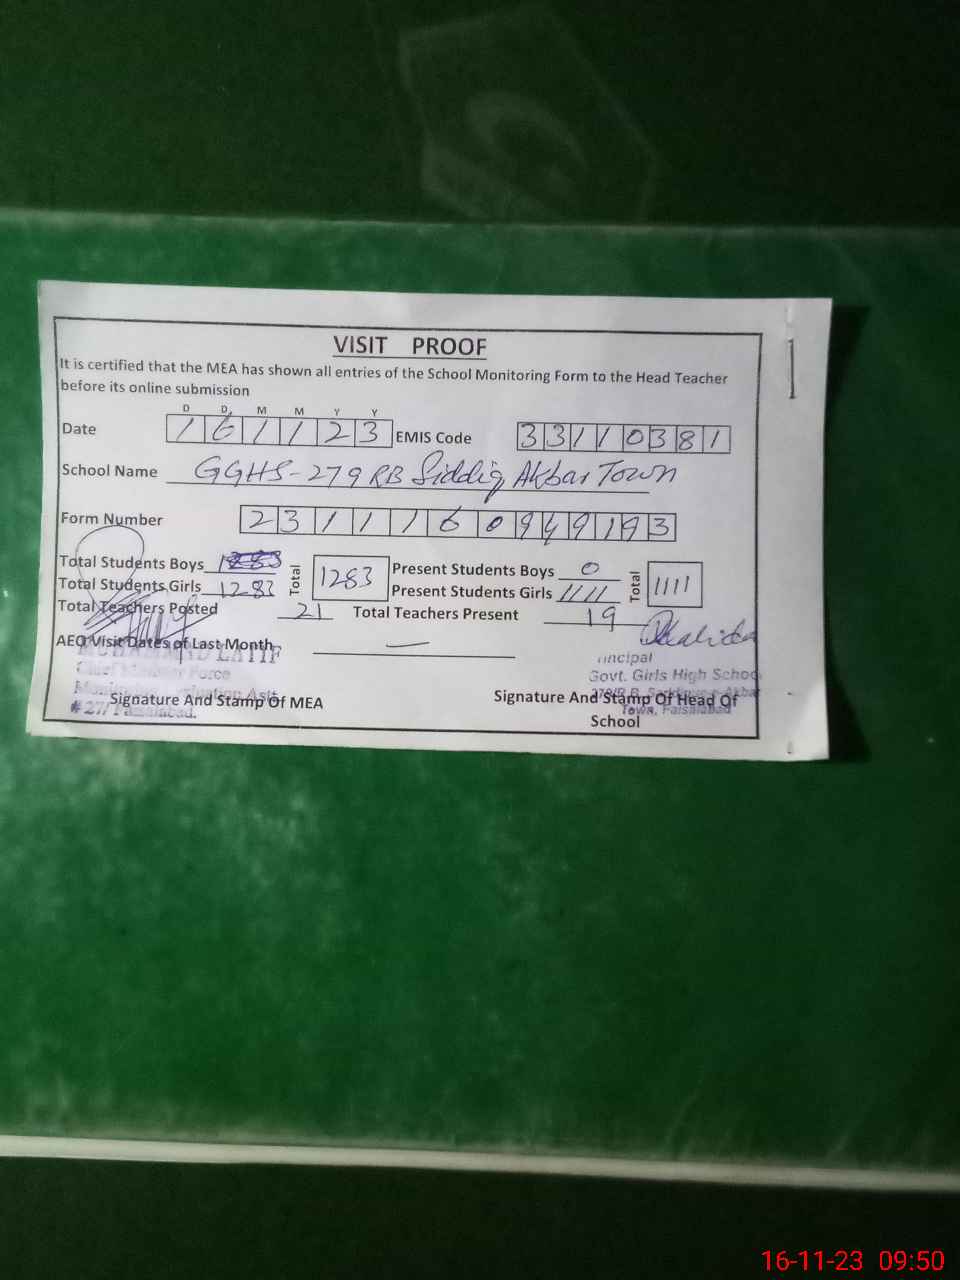 VISIT PROOF
It is certified that the MEA has shown all entries of the School Monitoring Form to the Head Teacher
before its online submission
D D M M Y Y
Date 1 6 1 1 2 3 EMIS Code 3 3 1 1 0 3 8 1
School Name GGHS-279 RB Siddiq Akbar Town
Form Number 2 3 1 1 1 6 0 9 4 9 1 9 3
Total Students Boys Total 1283 Present Students Boys 0 Total 1111
Total Students Girls 1283 Present Students Girls 1111
Total Teachers Posted 21 Total Teachers Present 19
AEO Visit Dates of Last Month —
MUHAMMAD LATIF
Chief Minister Force
# 277 Faisalabad.
Signature And Stamp Of MEA
Khalida
rincipal
Govt. Girls High School
Town, Faisalabad
Signature And Stamp Of Head Of
School
16-11-23 09:50